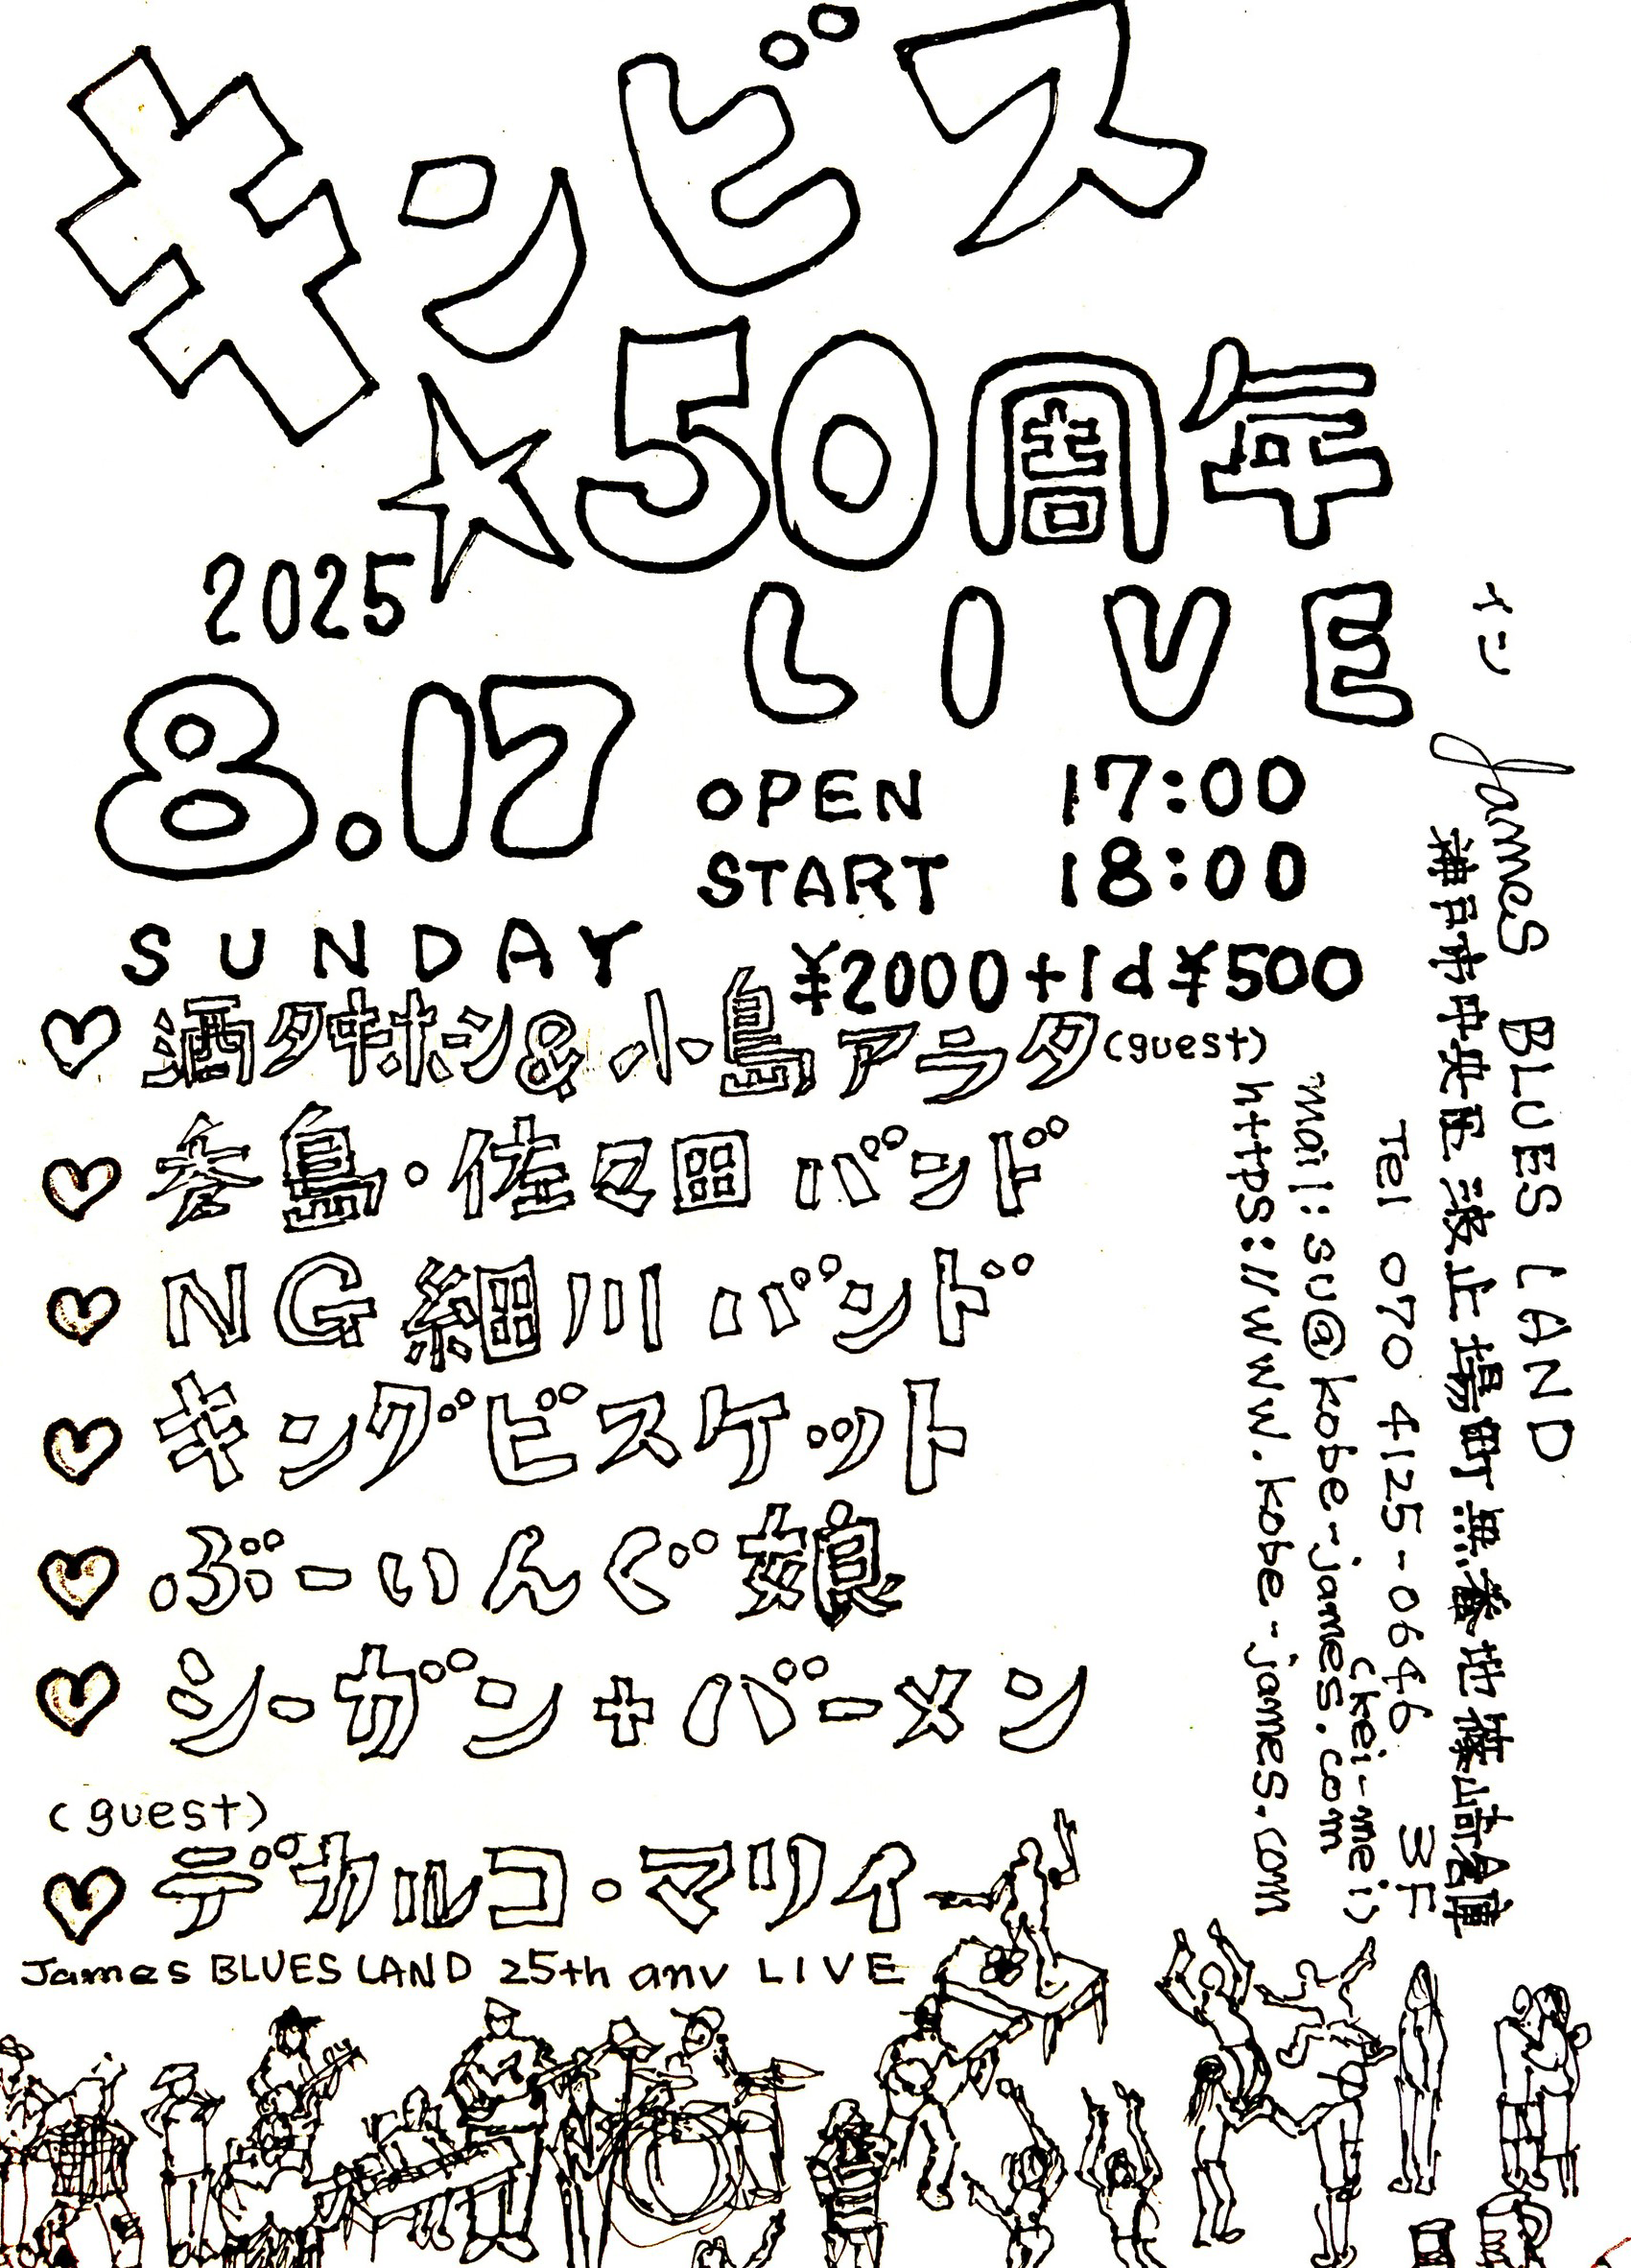 キンビス
☆50周年
2025
LIVE
8.17
OPEN 17:00
START 18:00
SUNDAY
¥2000+1d¥500
♡ 酒タ中ホン&小島アラタ(guest)
♡ 参島・佐々田バンド
♡ NG細川バンド
♡ キングビスケット
♡ ぶーいんぐ娘
♡ シーガン+バーメン
(guest)
♡ デカルコ・マリィ
James BLUES LAND 25th anv LIVE
イン
James BLUES LAND
神戸市中央区波止場町無番地篠崎倉庫
3F
Tel 070 4125-0646
(kei-mei)
mail:su@kobe-james.com
https://www.kobe-james.com